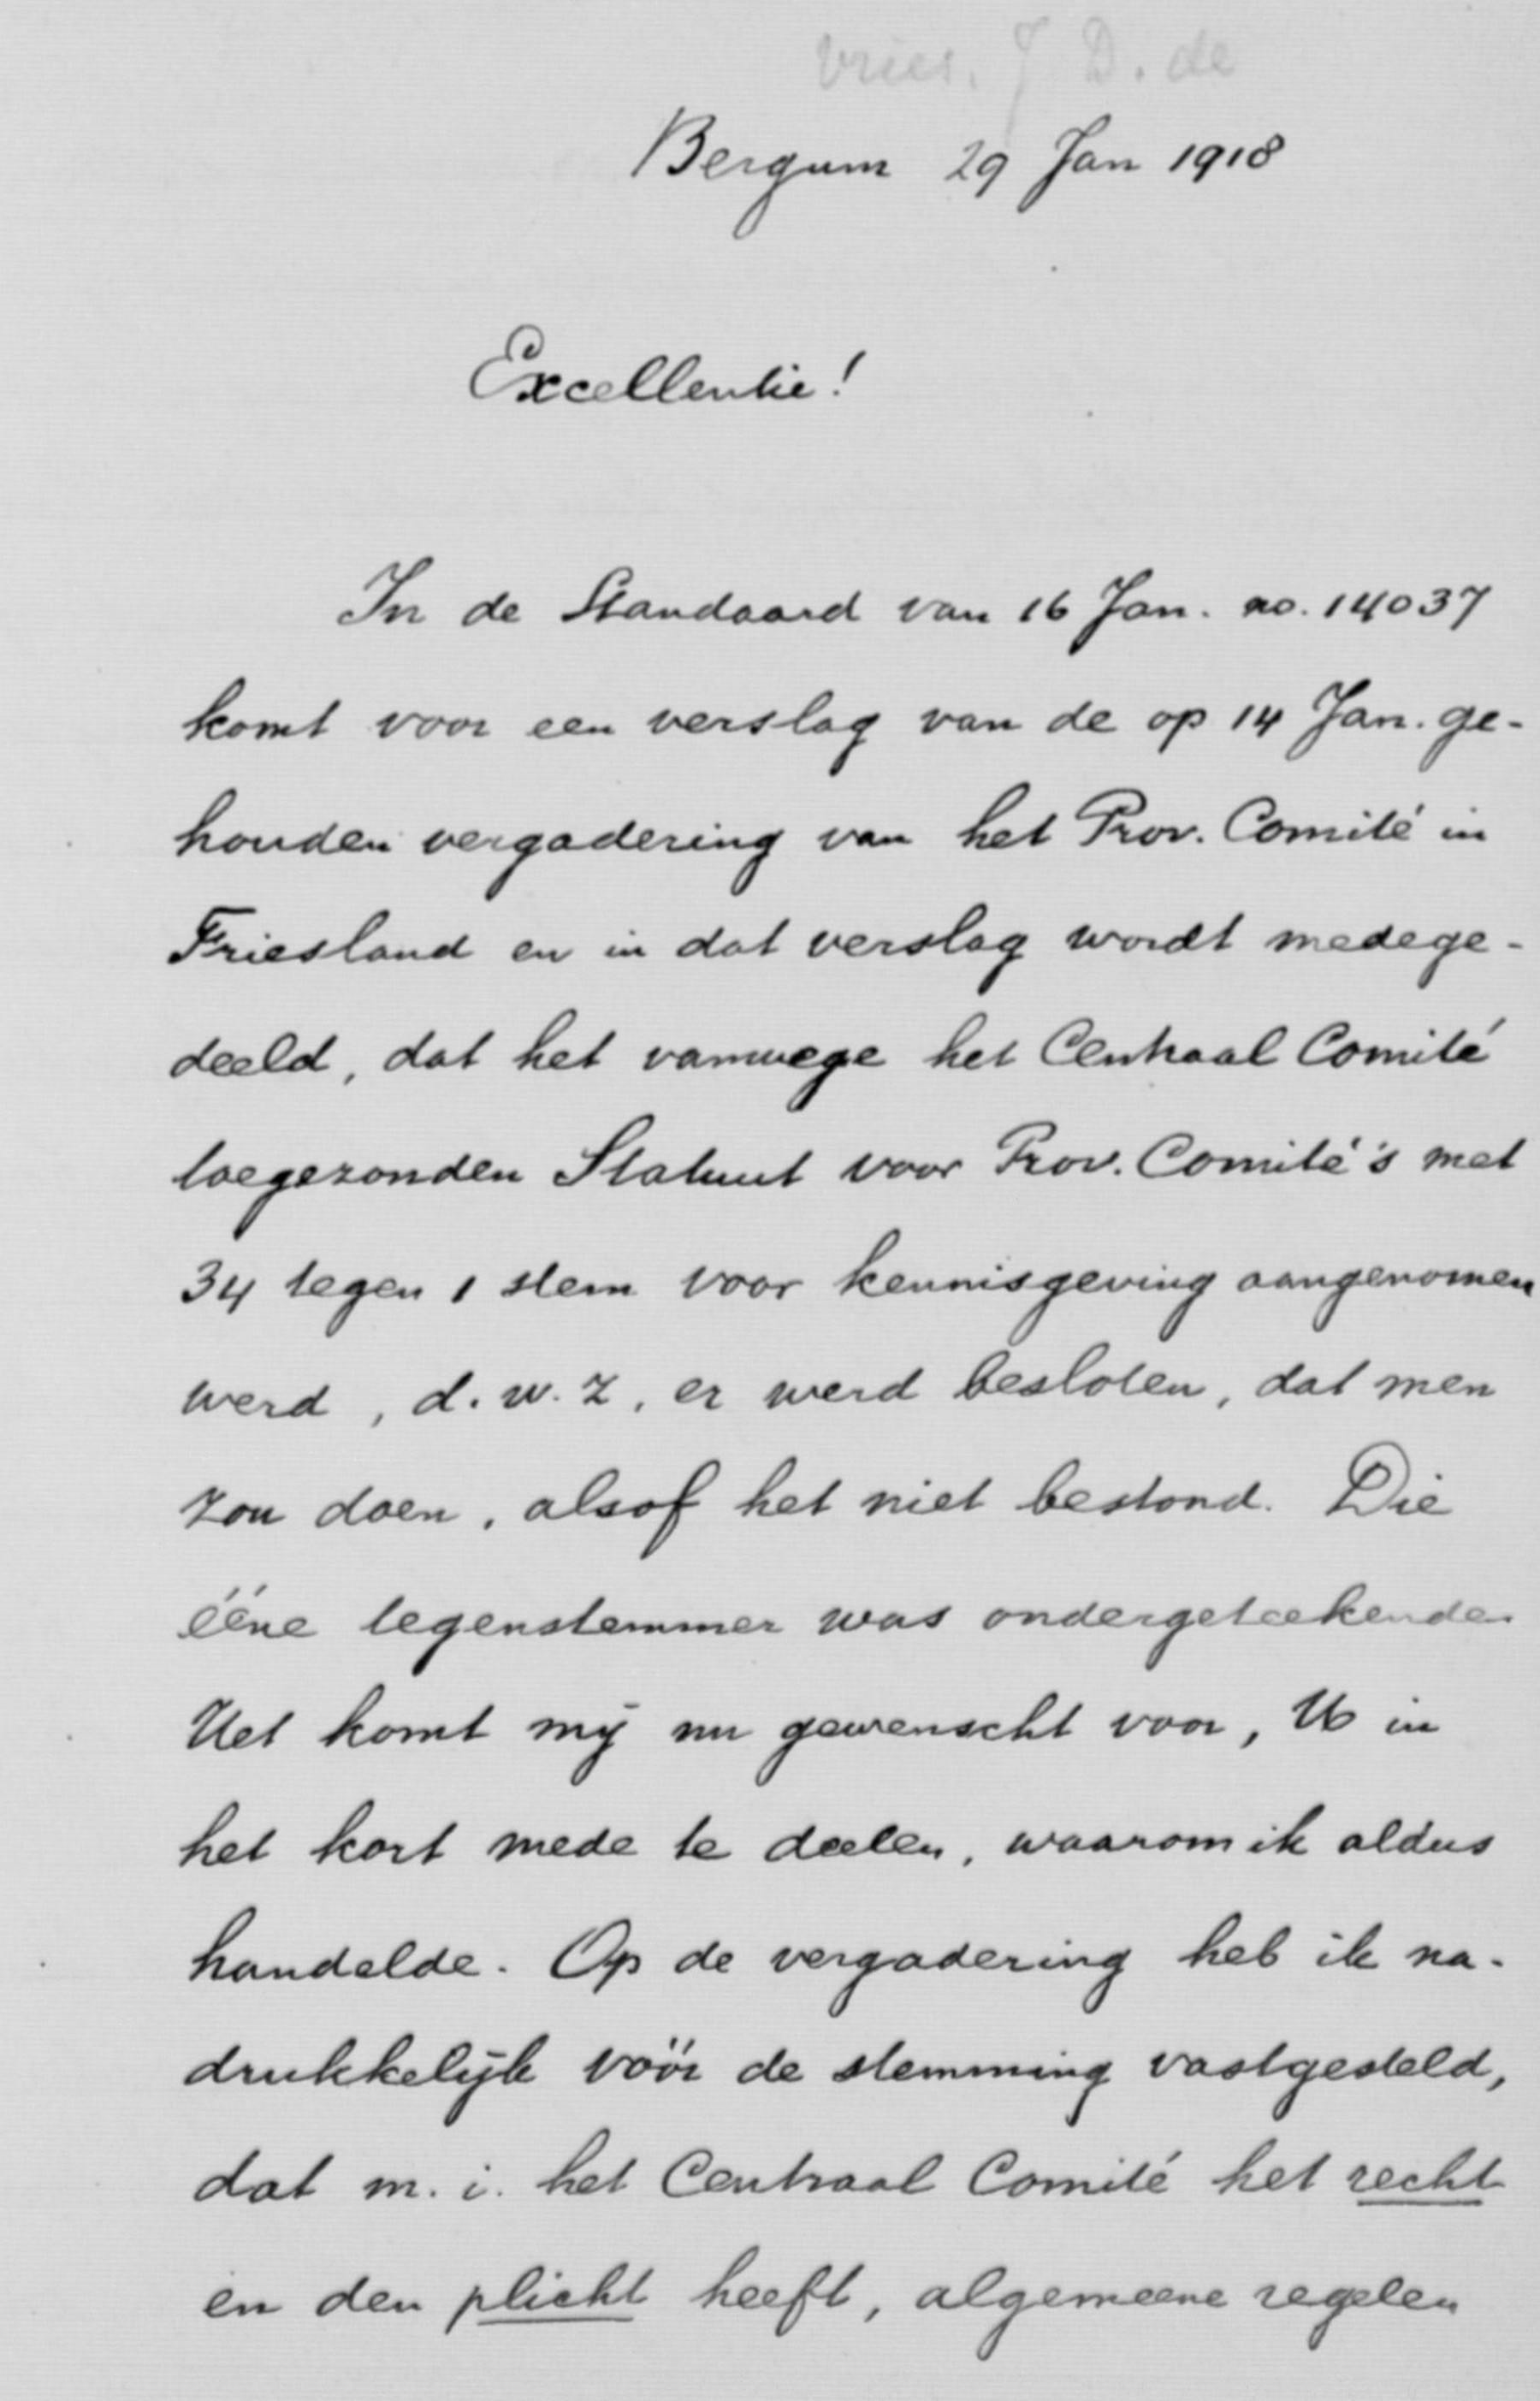 Vries, J D. de
Bergum 29 Jan 1918
Excellentie!
In de Standaard van 16 Jan. no. 14037
komt voor een verslag van de op 14 Jan. ge-
houden vergadering van het Prov. Comité in
Friesland en in dat verslag wordt medege-
deeld, dat het vanwege het Centraal Comité
toegezonden Statuut voor Prov. Comité's met
34 tegen 1 stem voor kennisgeving aangenomen
werd, d.w.z. er werd besloten, dat men
zou doen, alsof het niet bestond. Die
ééne tegenstemmer was ondergeteekende.
Het komt mij nu gewenscht voor, U in
het kort mede te deelen, waarom ik aldus
handelde. Op de vergadering heb ik na-
drukkelijk vóór de stemming vastgesteld,
dat m.i. het Centraal Comité het recht
en den plicht heeft, algemeene regelen